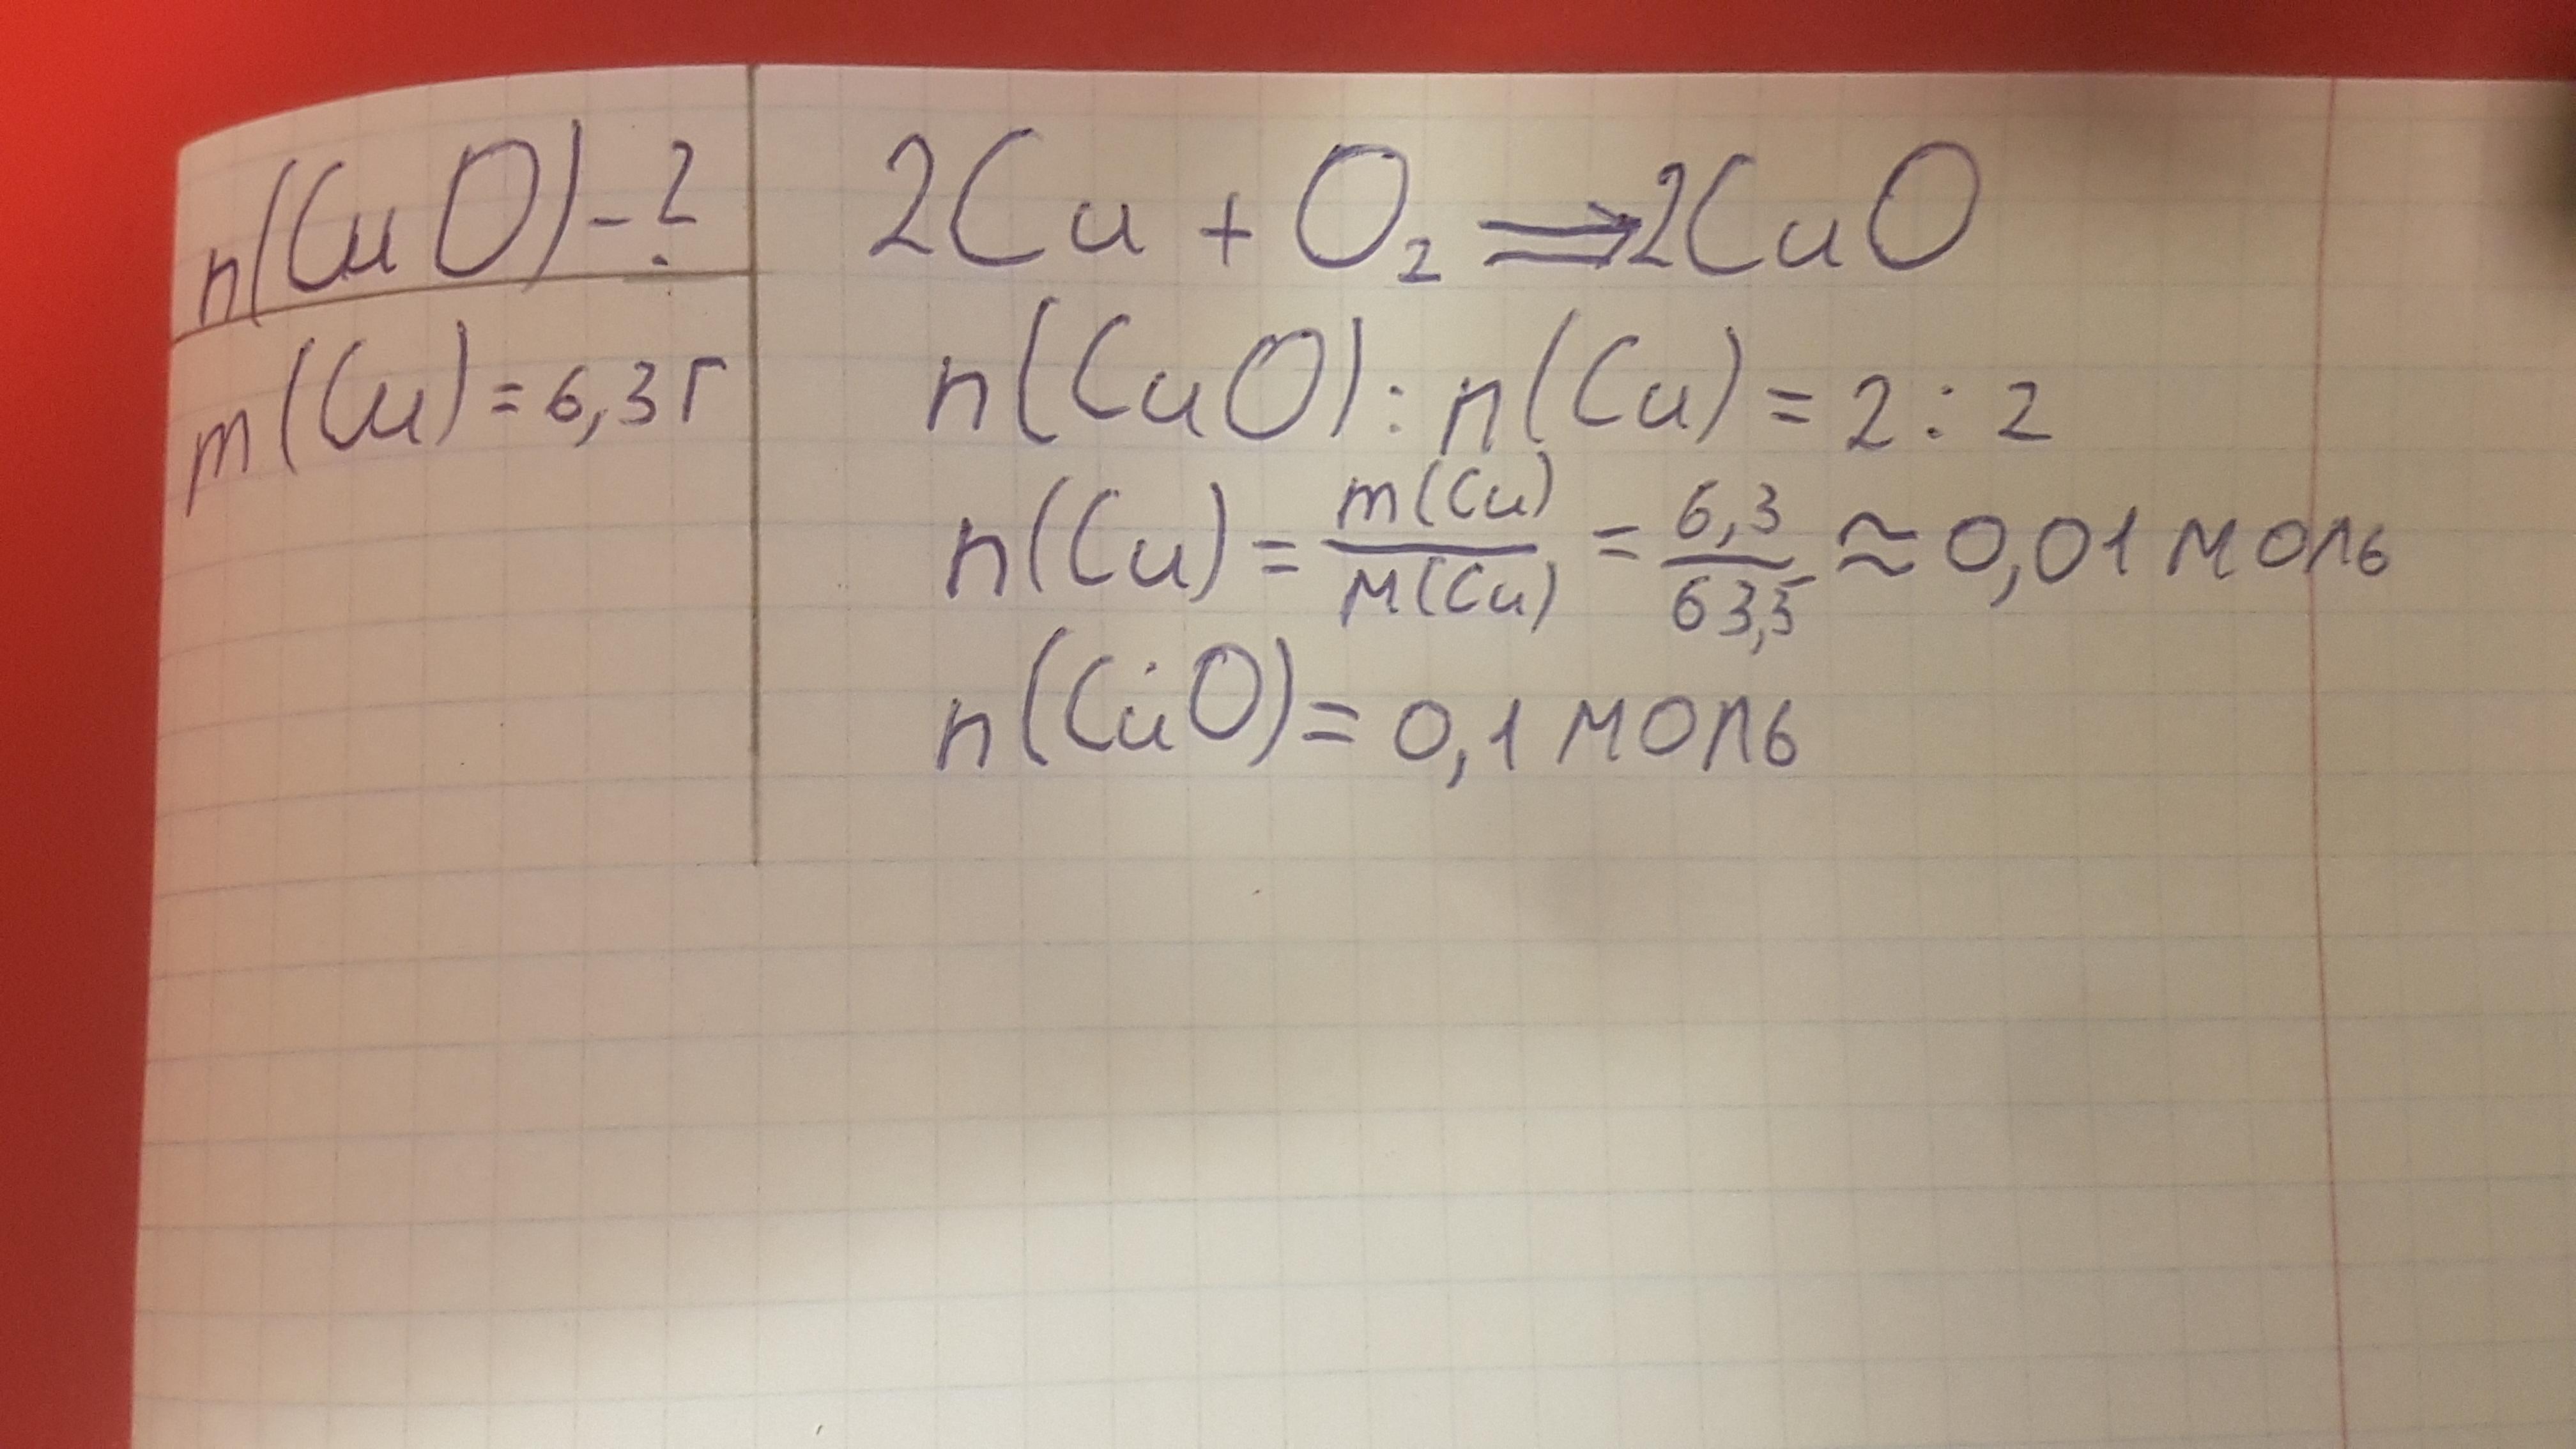 n(CuO)-?
m(Cu)=6,3г
2Cu + O₂ ⇒ 2CuO
n(CuO):n(Cu)=2:2
n(Cu)=m(Cu)/M(Cu)=6,3/63,5≈0,01 моль
n(CuO)=0,1 моль